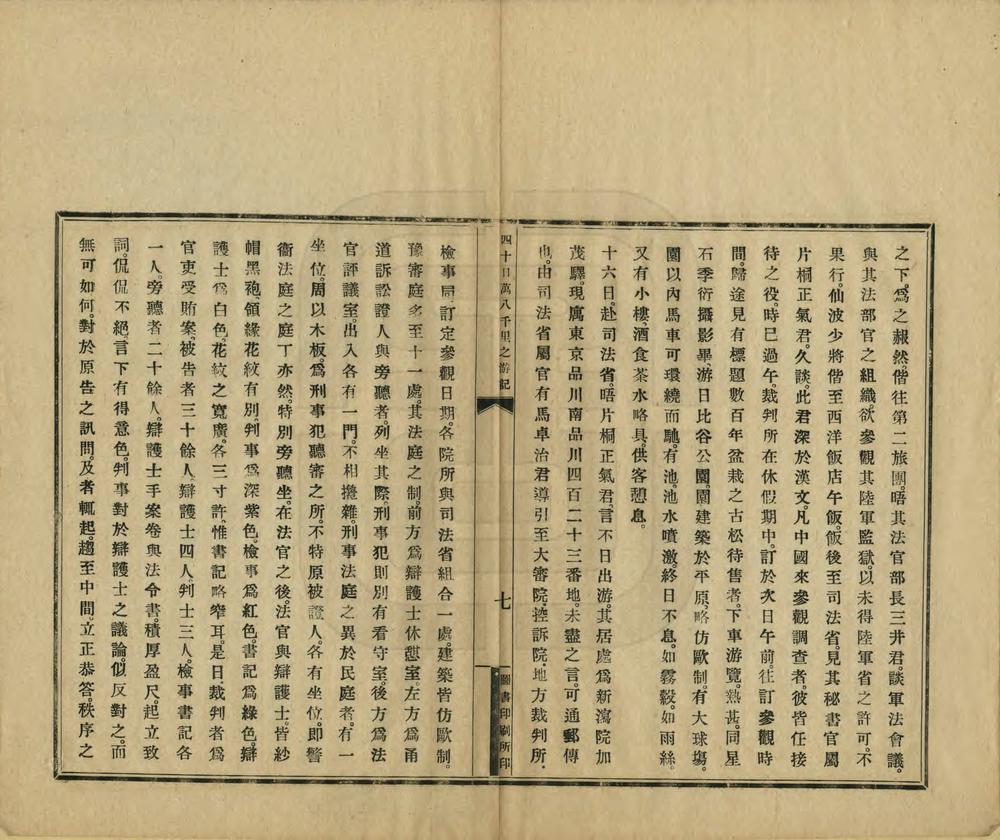 之下。爲之赧然。偕往第二旅團。晤其法官部長三井君。談軍法會議。
與其法部官之組織。欲參觀其陸軍監獄。以未得陸軍省之許可。不
果行。仙波少將偕至西洋飯店午飯。飯後至司法省。見其秘書官屬
片桐正氣君。久談。此君深於漢文。凡中國來參觀調查者。彼皆任接
待之役。時已過午。裁判所在休假期中。訂於次日午前。往訂參觀時
間。歸途見有標題數百年盆栽之古松待售者。下車游覽。熱甚。同星
石季衍攝影畢。游日比谷公園。園建築於平原。略仿歐制。有大球場。
園以內馬車可環繞而馳。有池。池水噴激。終日不息。如霧縠。如雨絲。
又有小樓。酒食茶水略具。供客憩息。
十六日。赴司法省。晤片桐正氣君。言不日出游。其居處爲新瀉院加
茂驛。現寓東京品川南品川四百二十三番地。未盡之言。可通郵傳
也。由司法省屬官有馬卓治君導引至大審院。控訴院。地方裁判所。
四十日萬八千里之游記
七
圖書印刷所印
檢事局。訂定參觀日期。各院所與司法省組合一處。建築皆仿歐制。
豫審庭多至十一處。其法庭之制。前方爲辯護士休憩室。左方爲甬
道。訴訟證人與旁聽者。列坐其際。刑事犯則別有看守室。後方爲法
官評議室。出入各有一門。不相攙雜。刑事法庭之異於民庭者。有一
坐位。周以木板。爲刑事犯聽審之所。不特原被證人。各有坐位。即警
衞法庭之庭丁亦然。特別旁聽坐。在法官之後。法官與辯護士。皆紗
帽黑袍。領緣花紋有別。判事爲深紫色。檢事爲紅色。書記爲綠色。辯
護士爲白色。花紋之寬廣。各三寸許。惟書記略窄耳。是日裁判者。爲
官吏受賄案。被告者三十餘人。辯護士四人。判士三人。檢事書記各
一人。旁聽者二十餘人。辯護士手案卷與法令書。積厚盈尺。起立致
詞。侃侃不絕。言下有得意色。判事對於辯護士之議論。似反對之。而
無可如何。對於原告之訊問。及者輒起。趨至中間。立正恭答。秩序之